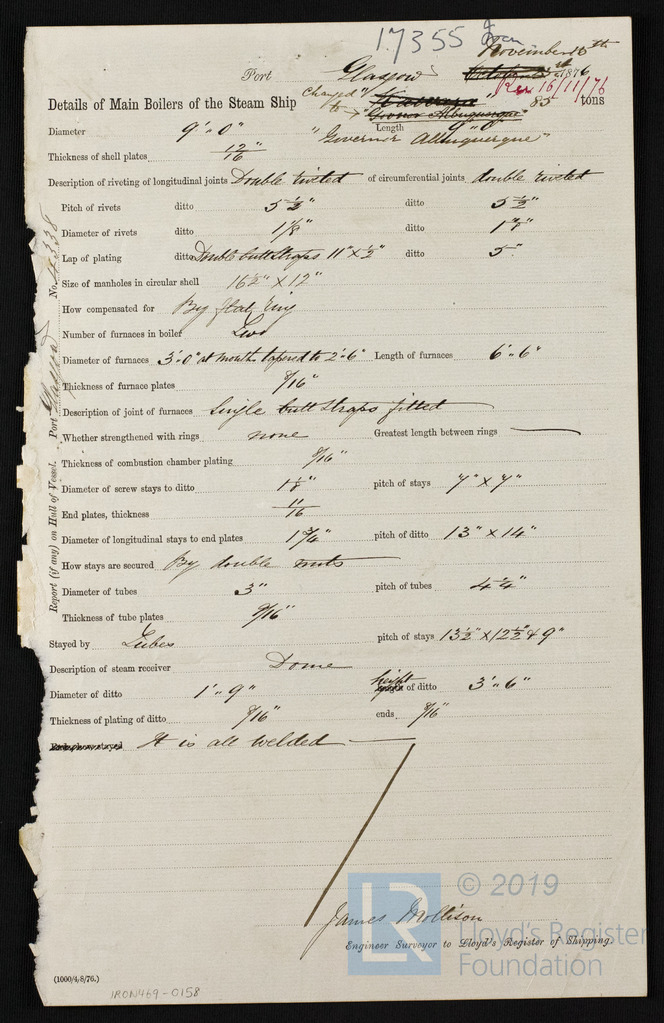 17355 Iron
November 10th
Port Glasgow 1876
Rec 16/11/76
Details of Main Boilers of the Steam Ship changed to "Governor Albuquerque" 85 tons
Diameter 9'.0" Length 9'.0"
"Governor Albuquerque"
Thickness of shell plates 12/16"
Description of riveting of longitudinal joints Double riveted of circumferential joints double riveted
Pitch of rivets ditto 5 1/2" ditto 5 1/2"
Diameter of rivets ditto 1 1/8" ditto
Lap of plating ditto Double butt straps 11" x 1/2" ditto 5"
Size of manholes in circular shell 16 1/2" x 12"
How compensated for By flat ring
Number of furnaces in boiler Two
Diameter of furnaces 3'.0" at mouth tapered to 2'.6" Length of furnaces 6'.6"
Thickness of furnace plates
Description of joint of furnaces Single butt straps fitted
Whether strengthened with rings none Greatest length between rings
Thickness of combustion chamber plating
Diameter of screw stays to ditto 1 1/8" pitch of stays 7" x 7"
End plates, thickness 11/16
Diameter of longitudinal stays to end plates 1 3/4" pitch of ditto 13" x 14"
How stays are secured By double nuts
Diameter of tubes 3" pitch of tubes 4 1/4"
Thickness of tube plates 9/16"
Stayed by Tubes pitch of stays 13 1/2" x 12 1/2" & 9"
Description of steam receiver Dome
Diameter of ditto 1'.9" height of ditto 3'.6"
Thickness of plating of ditto ends
It is all welded
James Mollison
Engineer Surveyor to Lloyd's Register of Shipping.
(1000/4/8/76.)
IRON469-0158
Report (if any) on Hull of Vessel. Port Glasgow No. 4338
LR
© 2019
Lloyd's Register
Foundation